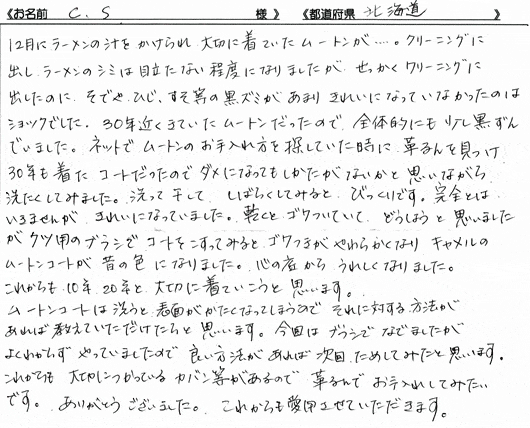 《お名前 C.S 様》 《都道府県 北海道 》
12月にラーメンの汁をかけられ 大切に着ていた ムートンが‥‥。クリーニングに
出し ラーメンのシミは目立たない程度になりましたが、せっかくクリーニングに
出したのに、そでや、ひじ、すそ等の黒ズミがあまりきれいになっていなかったのは
ショックでした。30年近くきていたムートンだったので、全体的にも少し黒ずん
でいました。ネットでムートンのお手入れ方を探していた時に、革るんを見つけ
30年も着たコートだったのでダメになってもしかたがないかと思いながら
洗たくしてみました。洗って干して、しばらくしてみると、びっくりです。完全とは
いえませんが、きれいになっていました。乾くと、ゴワついていて、どうしようと思いました
がクツ用のブラシでコートをこすってみるとゴワつきがやわらかくなり キャメルの
ムートンコートが昔の色になりました。心の底からうれしくなりました。
これからも、10年、20年と大切に着ていこうと思います。
ムートンコートは洗うと表面がかたくなってしまうので それに対する方法が
あれば教えていただけたらと思います。今回はブラシでなでましたが
よくわからずやっていましたので良い方法があれば次回ためしてみたいと思います。
これからも 大切につかっているカバン等があるので 革るんでお手入れしてみたい
です。ありがとうございました。これからも愛用させていただきます。